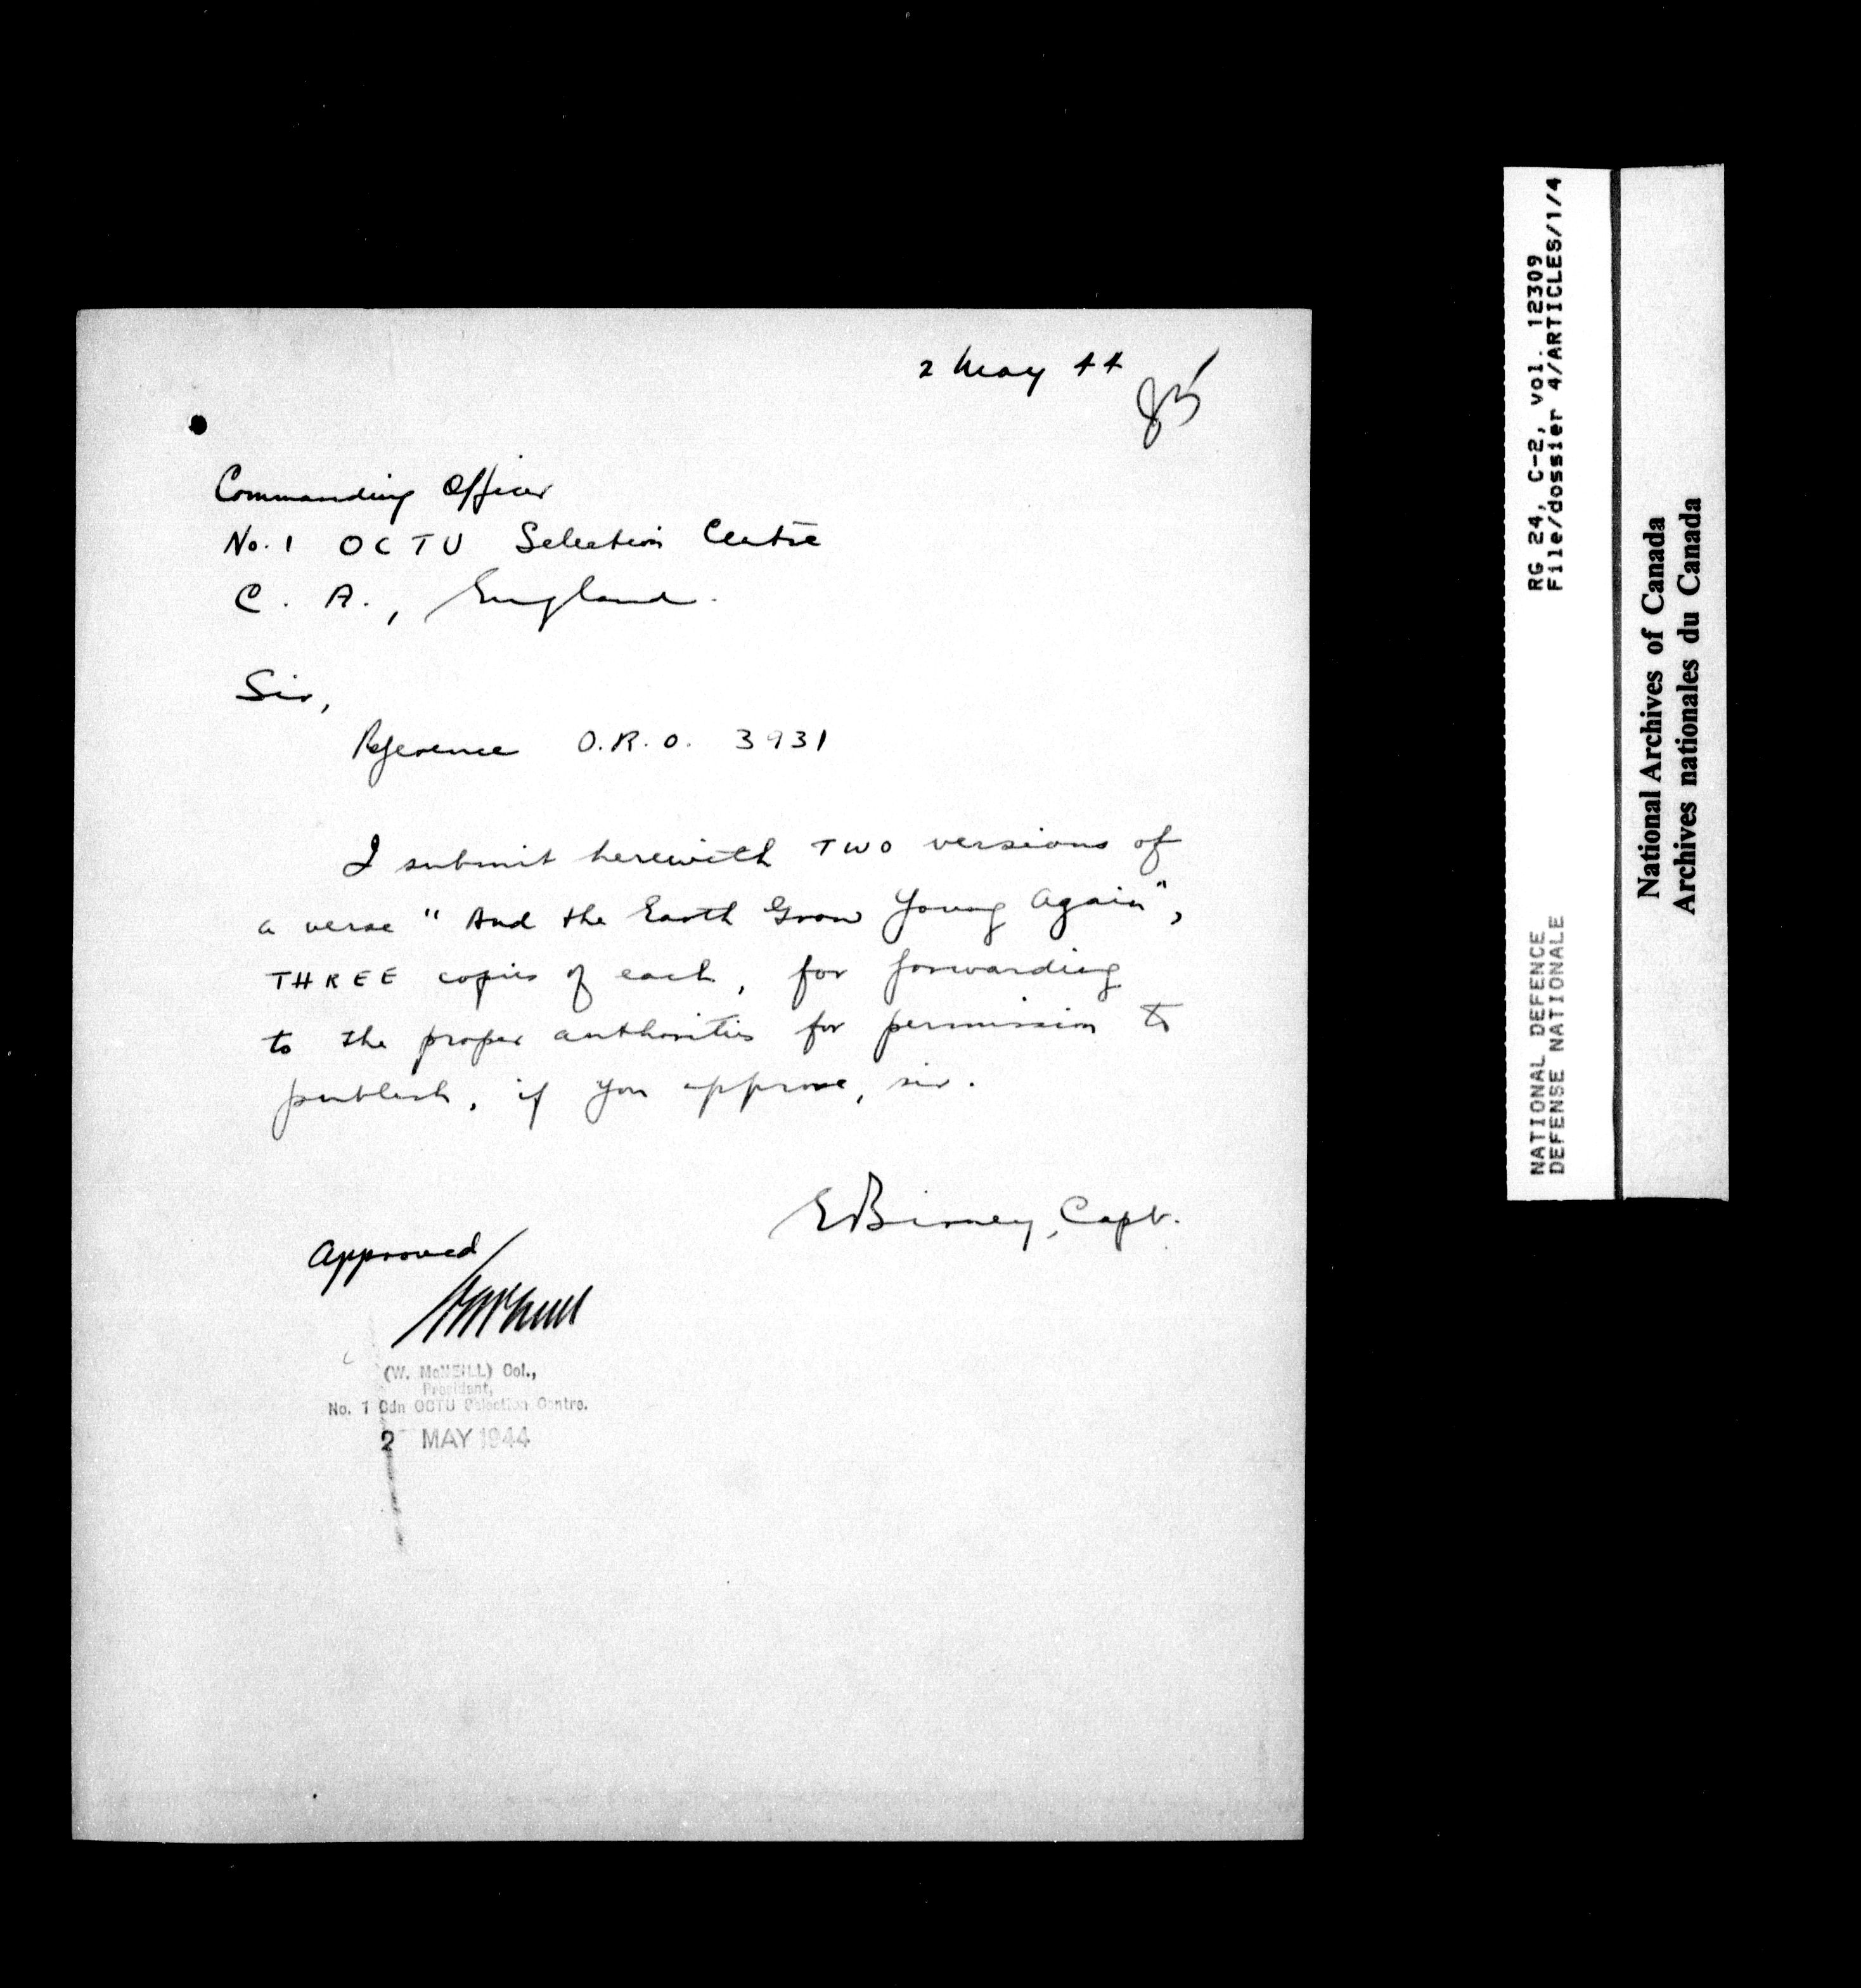 2 May 44
85
Commanding Officer
No. 1 OCTU Selection Centre
C. A., England.
Sir,
Reference O.R.O. 3931
I submit herewith TWO versions of
a verse "And the Earth Grow Young Again",
THREE copies of each, for forwarding
to the proper authorities for permission to
publish, if you approve, sir.
EBirney, Capt.
Approved
(W. McNEILL) Col.,
President,
No. 1 Cdn OCTU Selection Centre.
2 MAY 1944
RG 24, C-2, vol. 12309
File/dossier 4/ARTICLES/1/4
NATIONAL DEFENCE
DEFENSE NATIONALE
National Archives of Canada
Archives nationales du Canada